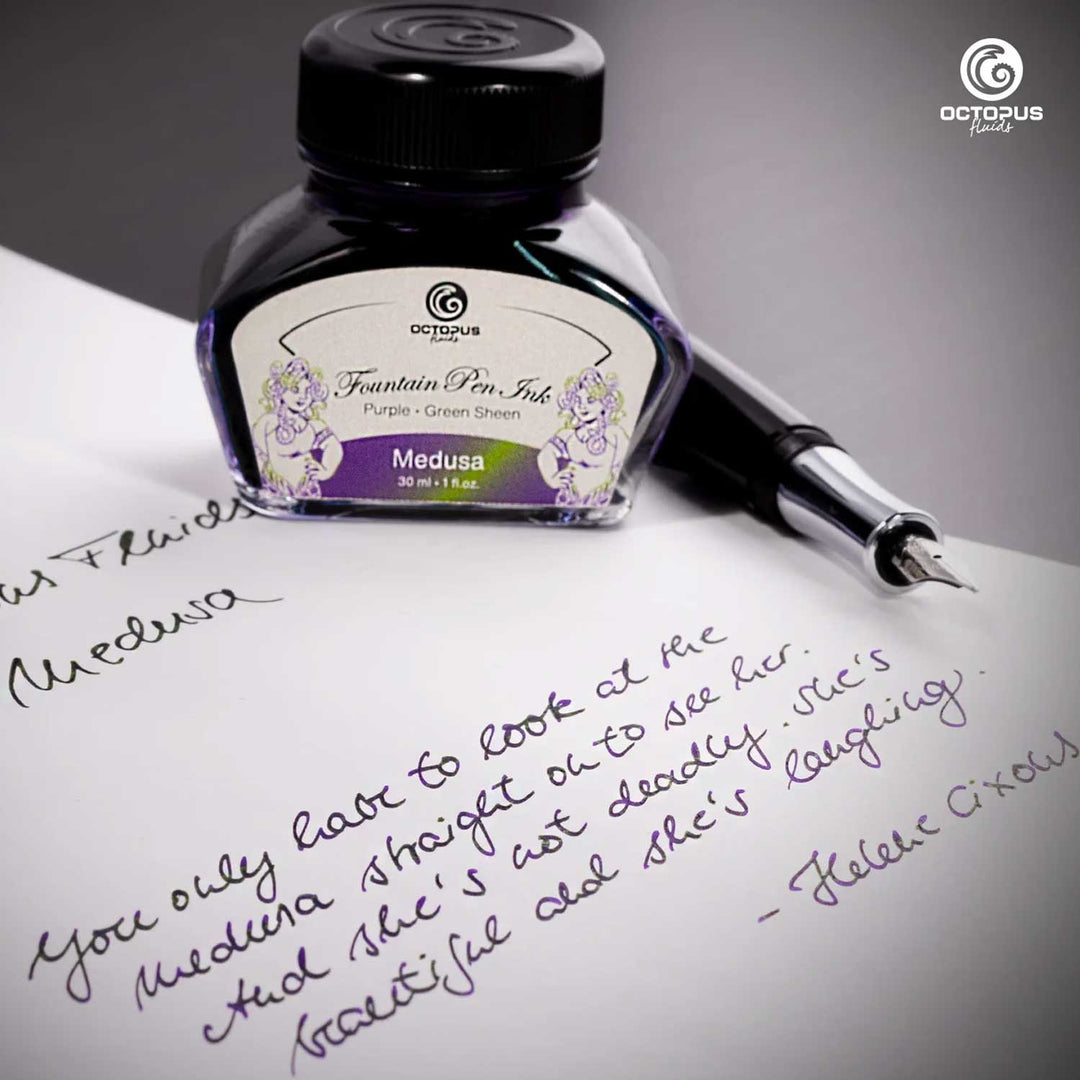 OCTOPUS
fluids
OCTOPUS
fluids
Fountain Pen Ink
Purple • Green Sheen
Medusa
30 ml • 1 fl.oz.
Fluids
Medusa
You only have to look at the
Medusa straight on to see her.
And she's not deadly. She's
beautiful and she's laughing.
- Helene Cixous